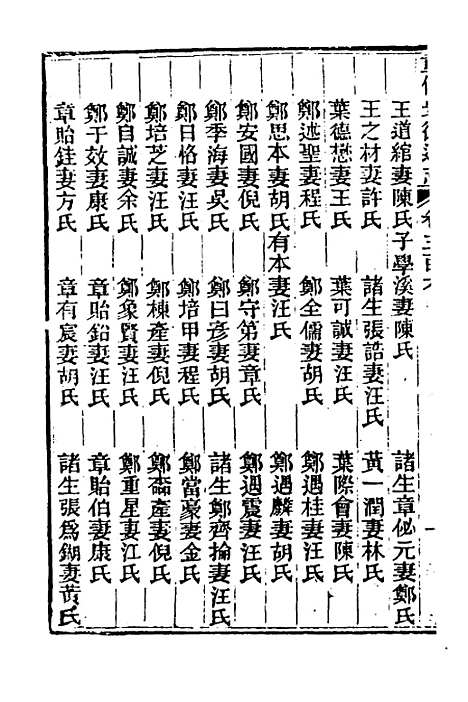 王道綰妻陳氏子學溪妻陳氏 諸生章佖元妻鄭氏
王之材妻許氏 諸生張誥妻汪氏 黃一潤妻林氏
葉德懋妻王氏 葉可誠妻汪氏 葉際會妻陳氏
鄭述聖妻程氏 鄭全儒妻胡氏 鄭遇桂妻汪氏
鄭思本妻胡氏有本妻汪氏 鄭遇麟妻胡氏
鄭安國妻倪氏 鄭守第妻章氏 鄭遇震妻汪氏
鄭季海妻吳氏 鄭曰彥妻胡氏 諸生鄭齊掄妻汪氏
鄭日恪妻汪氏 鄭培甲妻程氏 鄭當豪妻金氏
鄭培芝妻汪氏 鄭棟產妻倪氏 鄭產妻倪氏
鄭自誠妻余氏 鄭象賢妻汪氏 鄭重星妻江氏
鄭于效妻康氏 章貽鉛妻汪氏 章貽伯妻康氏
章貽銓妻方氏 章有宸妻胡氏 諸生張爲鍸妻黃氏